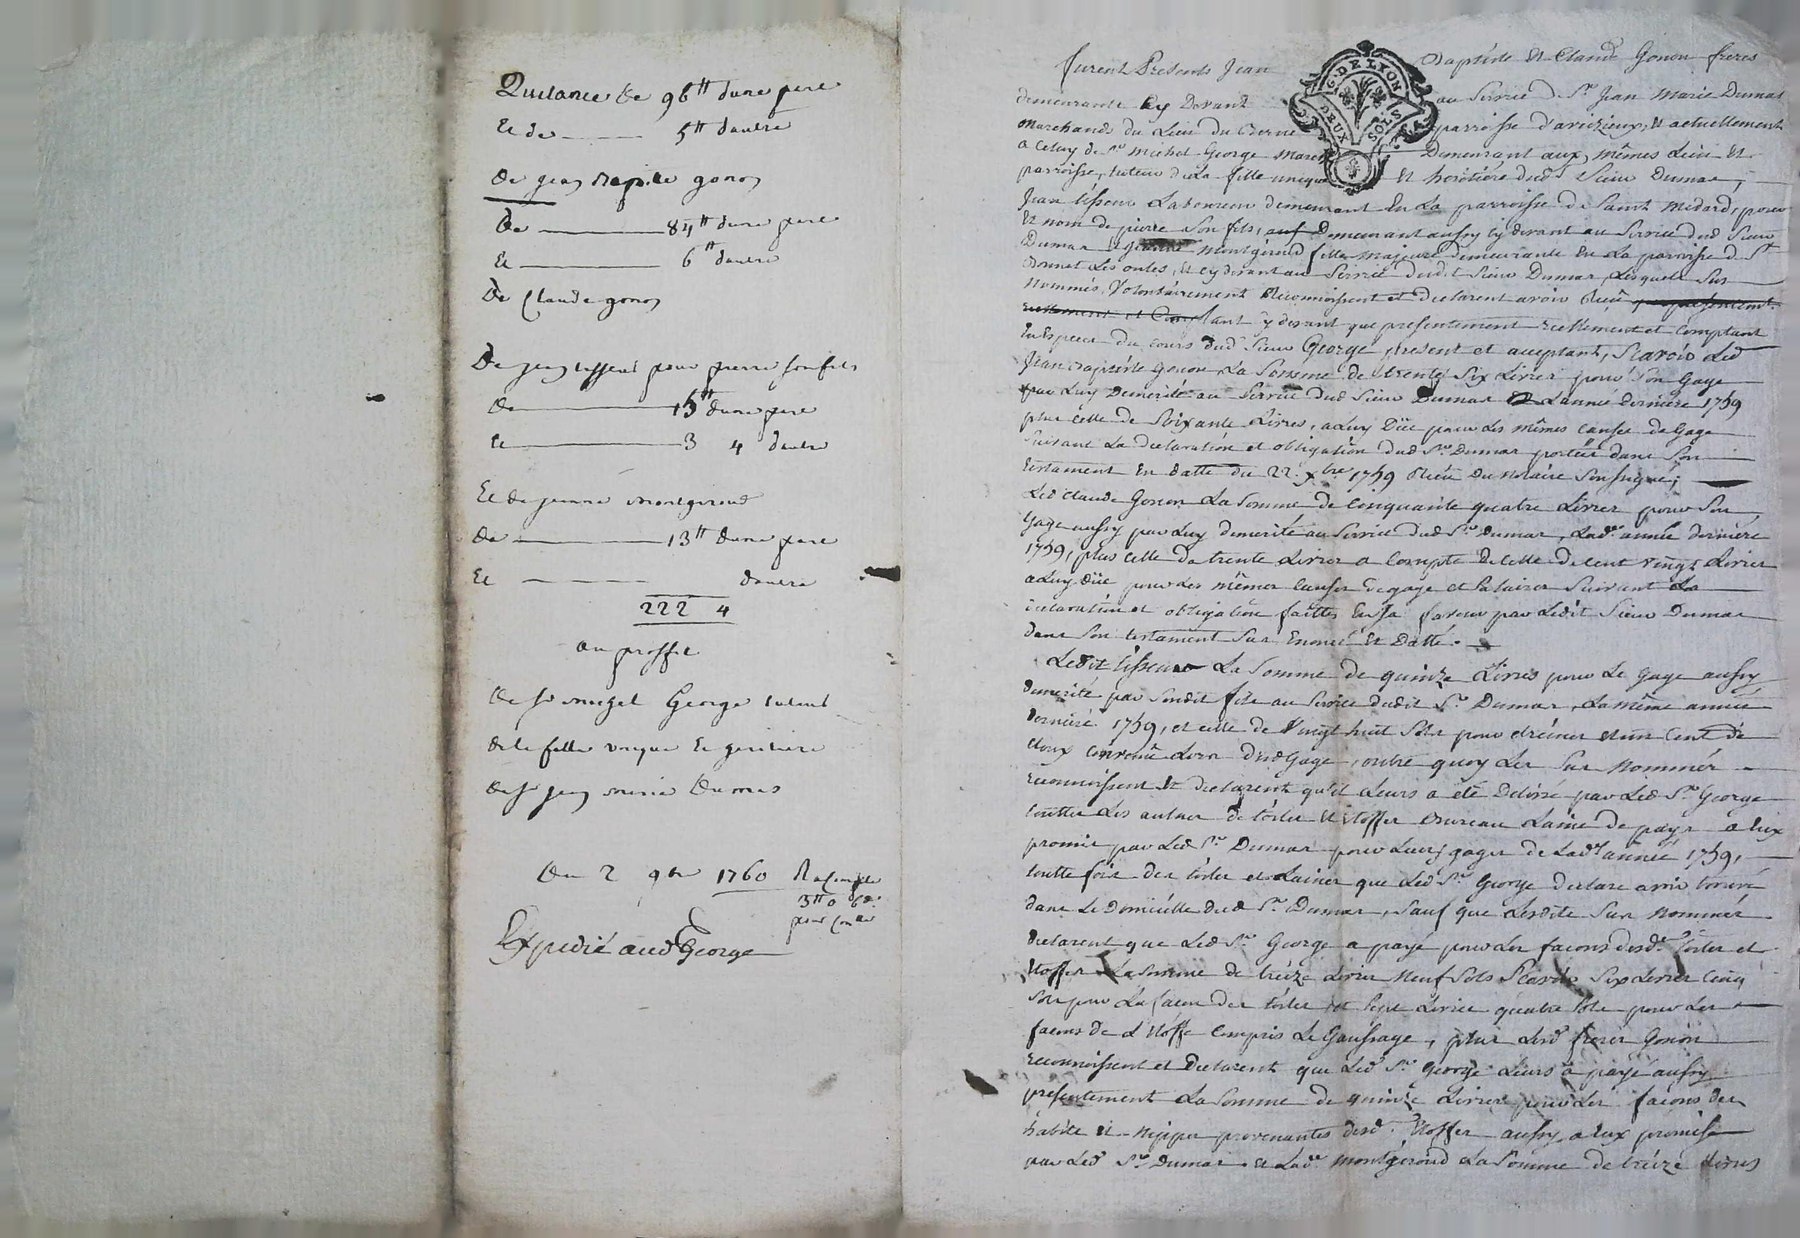 Quitance de 96tt d'une part
Et de 5tt d'autre
De jean Baptiste gonon
De 84tt d'une part
Et 6tt d'autre
De Claude gonon
De jean tisseur pour pierre son fils
De 15tt d'une part
Et 3 4 d'autre
Et de jeanne montgiroud
De 13tt d'une part
Et d'autre
222 4
au proffit
de Sr michel George tuteur
de la fille unique et héritière
de Sr jean marie Dumas
Du 2 9bre 1760
3tt 0 6d.
pour Con.le
Expedié aud George
furent Presents Jean Baptiste et Claude Gonon freres
G. DE LYON
DEUX SOLS
demeurants Cy Devant au service de Sr Jean Marie Dumas
marchand du Lieu du parroisse d'aveizieux, et actuellement
a Celuy de Sr michel George March Demeurant aux mêmes Lieu et
parroisse, tuteur de La fille unique et heritiere dud. Sieur Dumas,
Jean tisseur Laboureur demeurant En La parroisse de Saint Médard, pour
et nom de pierre Son fils, demeurant aussy cy devant au Service dud Sieur
Dumas et montgiroud fille majeure demeurante En La parroisse de St
Bonnet Les oules, et cy devant au Service dudit Sieur Dumas, Lesquels Sus
nommés, Volontairement Reconnoissent et declarent avoir Reçu
tant cy devant que presentement reellement et comptant
En Especes du cours dud. Sieur George present et acceptant, Scavoir Led
Jean Baptiste Gonon La Somme de trente Six Livres pour Son Gage
par Luy demerité au Service dud Sieur Dumas L'année derniere 1759
plus celle de Soixante Livres, a Luy Düe pour Les mêmes causes de Gage
Suivant La declaration et obligation dud Sr Dumas portée dans Son
testament En datte du 22 xbre 1759 Recu du notaire Soussigné;
Led Claude Gonon La Somme de Cinquante quatre Livres pour Son
Gage aussy par Luy demerité au Service dud Sr Dumas, Lad. année derniere
1759, plus celle de trente Livres a Compte de celle de cent vingt Livres
a Luy düe pour Les mêmes Causes de gage et Salaires Suivant La
declaration et obligation faittes En Sa faveur par Ledit Sieur Dumas
dans Son testament Sus Enoncé et Datté.
Ledit tisseur La Somme de quinze Livres pour Le Gage aussy
demerité par Sondit fils au Service dudit Sr Dumas, La même année
derniere 1759, et celle de Vingt huit Sols pour etreines et un Cent de
cloux convenu Lors dud Gage, outre quoy Les Sus nommés
reconnoissent et declarent qu'il Leurs a été Délivré par Led Sr George
touttes Les aulnes de toiles et Etoffes Bureau Laine de pays a Eux
promis par Led Sr Dumas pour Leurs gages de Lad. année 1759,
toutte fois des toiles et Laines que Led Sr George declare avoir trouvé
dans Le Domicille dud Sr Dumas, Sauf que Lesdits Sus nommés
declarent que Led Sr George a payé pour Les facons desd. toiles et
Etoffes La Somme de treize Livres neuf Sols Scavoir Six Livres Cinq
Sols pour La facon des toiles et Sept Livres quatre Sols pour Les
facons de L'Etoffe Compris Le Gaufrage, plus Lesd. freres Gonon
reconnoissent et Declarent que Led Sr George Leurs a payé aussy
presentement La Somme de quinze Livres pour Les facons des
habits et nippes provenantes desd. Etoffes aussy a Eux promise
par Led. Sr Dumas et Lade montgiroud La Somme de treize Livres